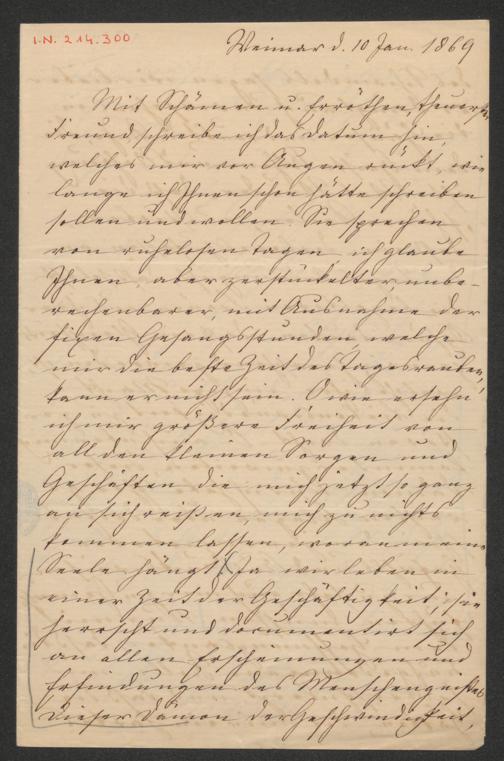 I.N. 214.300
Weimar d. 10 Jan. 1869
Mit Schämen u. Erröthen, theuerster
Freund, schreibe ich das Datum hin,
welches mir vor Augen rückt, wie
lange ich Ihnen schon hätte schreiben
sollen und wollen. Sie sprechen
von ruhelosen Tagen, ich glaube
Ihnen, aber zerstückelter unbe-
rechenbarer, mit Ausnahme der
fixen Gesangsstunden, welche
mir die beste Zeit des Tages rauben,
kann er nicht sein. O wie ersehn
ich mir größere Freiheit von
all den kleinen Sorgen und
Geschäften die mich jetzt so ganz
an sich reißen, mich zu nichts
kommen lassen, woran meine
Seele hängt. Ja wir leben in
einer Zeit der Geschäftigkeit; sie
herrscht und documentirt sich
an allen Erscheinungen und
Erfindungen des Menschengeistes
Dieser Dämon der Geschwindigkeit,